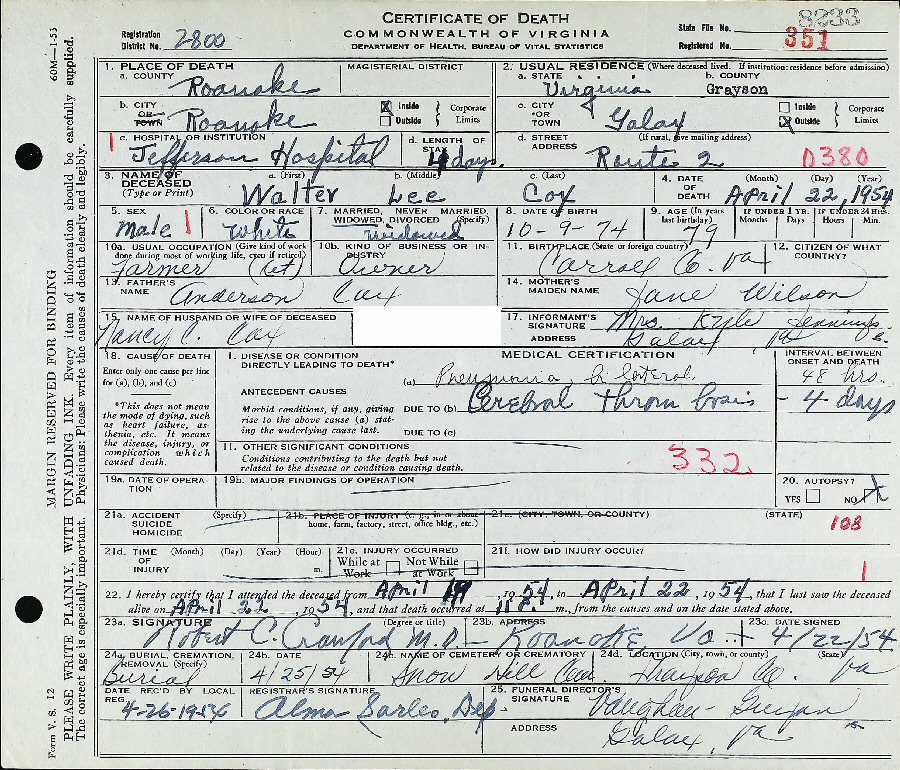 60M—1-53
Form V. S. 12
MARGIN RESERVED FOR BINDING
PLEASE WRITE PLAINLY, WITH UNFADING INK. Every item of information should be carefully supplied.
The correct age is especially important. Physicians: Please write the causes of death clearly and legibly.
CERTIFICATE OF DEATH
COMMONWEALTH OF VIRGINIA
DEPARTMENT OF HEALTH, BUREAU OF VITAL STATISTICS
Registration District No. 2800
State File No. 8233
Registered No. 351
1. PLACE OF DEATH
a. COUNTY Roanoke
MAGISTERIAL DISTRICT
2. USUAL RESIDENCE (Where deceased lived. If institution: residence before admission)
a. STATE Virginia
b. COUNTY Grayson
b. CITY OR TOWN Roanoke
Inside Outside Corporate Limits
c. CITY OR TOWN Galax
Inside Outside Corporate Limits
c. HOSPITAL OR INSTITUTION Jefferson Hospital
d. LENGTH OF STAY 4 days.
d. STREET ADDRESS (If rural, give mailing address) Route 2
0380
3. NAME OF DECEASED (Type or Print)
a. (First) Walter
b. (Middle) Lee
c. (Last) Cox
4. DATE OF DEATH (Month) (Day) (Year) April 22, 1954
5. SEX Male 1
6. COLOR OR RACE White
7. MARRIED, NEVER MARRIED, WIDOWED, DIVORCED (Specify) Widowed
8. DATE OF BIRTH 10-9-74
9. AGE (In years last birthday) 79
IF UNDER 1 YR. Months Days
IF UNDER 24 HRS. Hours Min.
10a. USUAL OCCUPATION (Give kind of work done during most of working life, even if retired) Farmer (Ret)
10b. KIND OF BUSINESS OR INDUSTRY Owner
11. BIRTHPLACE (State or foreign country) Carroll Co. Va
12. CITIZEN OF WHAT COUNTRY?
13. FATHER'S NAME Anderson Cox
14. MOTHER'S MAIDEN NAME Jane Wilson
15. NAME OF HUSBAND OR WIFE OF DECEASED Nancy C. Cox
17. INFORMANT'S SIGNATURE Mrs. Kyle Jennings
ADDRESS Galax, Va
18. CAUSE OF DEATH
Enter only one cause per line for (a), (b), and (c)
*This does not mean the mode of dying, such as heart failure, asthenia, etc. It means the disease, injury, or complication which caused death.
MEDICAL CERTIFICATION
INTERVAL BETWEEN ONSET AND DEATH
I. DISEASE OR CONDITION DIRECTLY LEADING TO DEATH*
(a) Pneumonia bilateral. 48 hrs.
ANTECEDENT CAUSES
Morbid conditions, if any, giving rise to the above cause (a) stating the underlying cause last.
DUE TO (b) Cerebral thrombosis - 4 days
DUE TO (c)
11. OTHER SIGNIFICANT CONDITIONS
Conditions contributing to the death but not related to the disease or condition causing death.
332
19a. DATE OF OPERATION
19b. MAJOR FINDINGS OF OPERATION
20. AUTOPSY?
YES NO
21a. ACCIDENT SUICIDE HOMICIDE (Specify)
21b. PLACE OF INJURY (e. g., in or about home, farm, factory, street, office bldg., etc.)
21c. (CITY, TOWN, OR COUNTY) (STATE)
108
21d. TIME OF INJURY (Month) (Day) (Year) (Hour) m.
21e. INJURY OCCURRED
While at Work Not While at Work
21f. HOW DID INJURY OCCUR?
1
22. I hereby certify that I attended the deceased from April 19, 1954, to April 22, 1954, that I last saw the deceased
alive on April 22, 1954, and that death occurred at 11 m., from the causes and on the date stated above.
23a. SIGNATURE (Degree or title) Robert C. Crawford M.D.
23b. ADDRESS Roanoke Va
23c. DATE SIGNED 4/22/54
24a. BURIAL, CREMATION, REMOVAL (Specify) Burial
24b. DATE 4/25/54
24c. NAME OF CEMETERY OR CREMATORY Snow Hill Cem.
24d. LOCATION (City, town, or county) (State) Grayson Co. Va
DATE REC'D BY LOCAL REG. 4-26-1954
REGISTRAR'S SIGNATURE Alma Sarles, Dep.
25. FUNERAL DIRECTOR'S SIGNATURE Vaughan-Guynn
ADDRESS Galax, Va